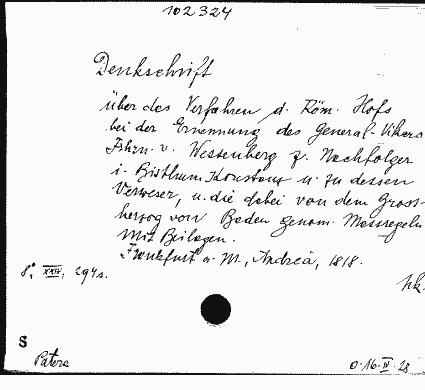 102324
Denkschrift
über das Verfahren d. Röm. Hofs
bei der Ernennung des General-Vikars
Frhrn. v. Wessenberg z. Nachfolger
i. Bisthum Konstanz u. zu dessen
Verweser, u. die dabei von dem Gross-
herzog von Baden genom. Massregeln
Mit Beilagen.
Frankfurt a. M., Andreä, 1818.
8°. XXIV, 294 s.
S
Patera
0.16.IV.28